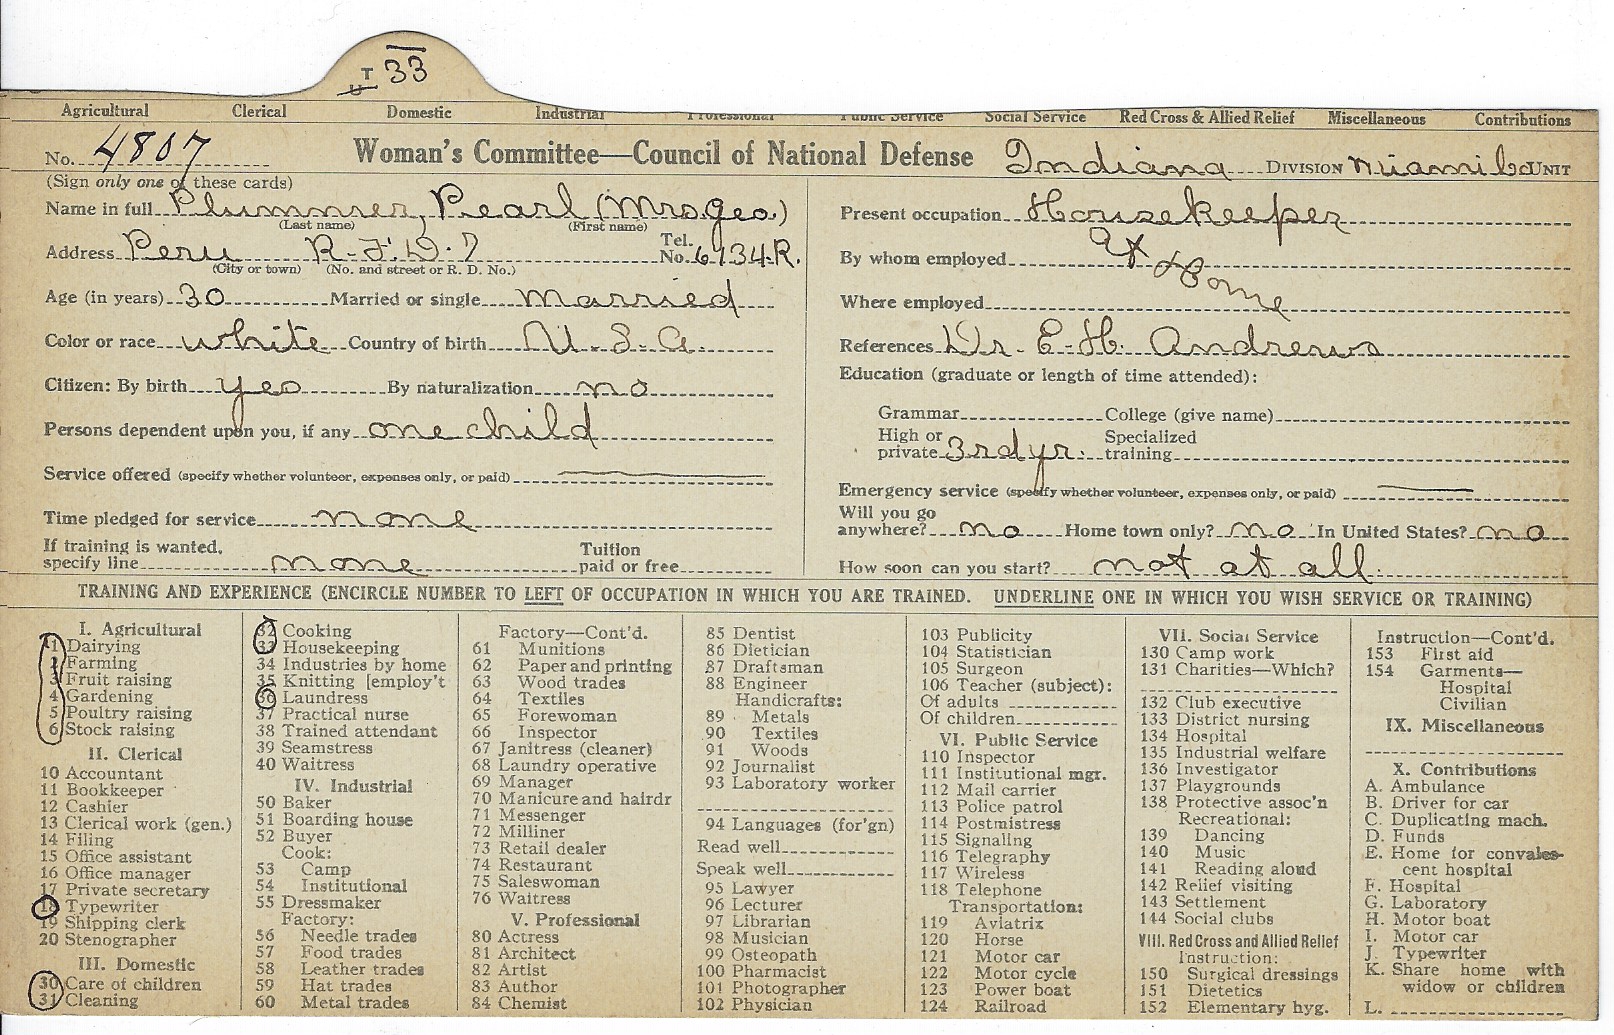 T 33
Agricultural Clerical Domestic Industrial Professional Public Service Social Service Red Cross & Allied Relief Miscellaneous Contributions
No. 4807 Woman's Committee—Council of National Defense Indiana DIVISION Miami Co UNIT
(Sign only one of these cards)
Name in full Plummer, Pearl (Mrs. Geo.)
(Last name) (First name)
Address Peru R.F.D. 7 Tel. No. 6134-R.
(City or town) (No. and street or R. D. No.)
Age (in years) 30 Married or single Married
Color or race white Country of birth U.S.A.
Citizen: By birth yes By naturalization no
Persons dependent upon you, if any one child
Service offered (specify whether volunteer, expenses only, or paid)
Time pledged for service none
If training is wanted,
specify line none Tuition paid or free
Present occupation Housekeeper
By whom employed At Home
Where employed
References Dr. E. H. Andrews
Education (graduate or length of time attended):
Grammar College (give name)
High or private 3rd yr. Specialized training
Emergency service (specify whether volunteer, expenses only, or paid)
Will you go
anywhere? no Home town only? no In United States? no
How soon can you start? not at all.
TRAINING AND EXPERIENCE (ENCIRCLE NUMBER TO LEFT OF OCCUPATION IN WHICH YOU ARE TRAINED. UNDERLINE ONE IN WHICH YOU WISH SERVICE OR TRAINING)
I. Agricultural
1 Dairying
2 Farming
3 Fruit raising
4 Gardening
5 Poultry raising
6 Stock raising
II. Clerical
10 Accountant
11 Bookkeeper
12 Cashier
13 Clerical work (gen.)
14 Filing
15 Office assistant
16 Office manager
17 Private secretary
18 Typewriter
19 Shipping clerk
20 Stenographer
III. Domestic
30 Care of children
31 Cleaning
32 Cooking
33 Housekeeping
34 Industries by home
35 Knitting [employ't
36 Laundress
37 Practical nurse
38 Trained attendant
39 Seamstress
40 Waitress
IV. Industrial
50 Baker
51 Boarding house
52 Buyer
Cook:
53 Camp
54 Institutional
55 Dressmaker
Factory:
56 Needle trades
57 Food trades
58 Leather trades
59 Hat trades
60 Metal trades
Factory—Cont'd.
61 Munitions
62 Paper and printing
63 Wood trades
64 Textiles
65 Forewoman
66 Inspector
67 Janitress (cleaner)
68 Laundry operative
69 Manager
70 Manicure and hairdr
71 Messenger
72 Milliner
73 Retail dealer
74 Restaurant
75 Saleswoman
76 Waitress
V. Professional
80 Actress
81 Architect
82 Artist
83 Author
84 Chemist
85 Dentist
86 Dietician
87 Draftsman
88 Engineer
Handicrafts:
89 Metals
90 Textiles
91 Woods
92 Journalist
93 Laboratory worker
94 Languages (for'gn)
Read well
Speak well
95 Lawyer
96 Lecturer
97 Librarian
98 Musician
99 Osteopath
100 Pharmacist
101 Photographer
102 Physician
103 Publicity
104 Statistician
105 Surgeon
106 Teacher (subject):
Of adults
Of children
VI. Public Service
110 Inspector
111 Institutional mgr.
112 Mail carrier
113 Police patrol
114 Postmistress
115 Signaling
116 Telegraphy
117 Wireless
118 Telephone
Transportation:
119 Aviatrix
120 Horse
121 Motor car
122 Motor cycle
123 Power boat
124 Railroad
VII. Social Service
130 Camp work
131 Charities—Which?
132 Club executive
133 District nursing
134 Hospital
135 Industrial welfare
136 Investigator
137 Playgrounds
138 Protective assoc'n
Recreational:
139 Dancing
140 Music
141 Reading aloud
142 Relief visiting
143 Settlement
144 Social clubs
VIII. Red Cross and Allied Relief
Instruction:
150 Surgical dressings
151 Dietetics
152 Elementary hyg.
Instruction—Cont'd.
153 First aid
154 Garments—
Hospital
Civilian
IX. Miscellaneous
X. Contributions
A. Ambulance
B. Driver for car
C. Duplicating mach.
D. Funds
E. Home for convales-
cent hospital
F. Hospital
G. Laboratory
H. Motor boat
I. Motor car
J. Typewriter
K. Share home with
widow or children
L.